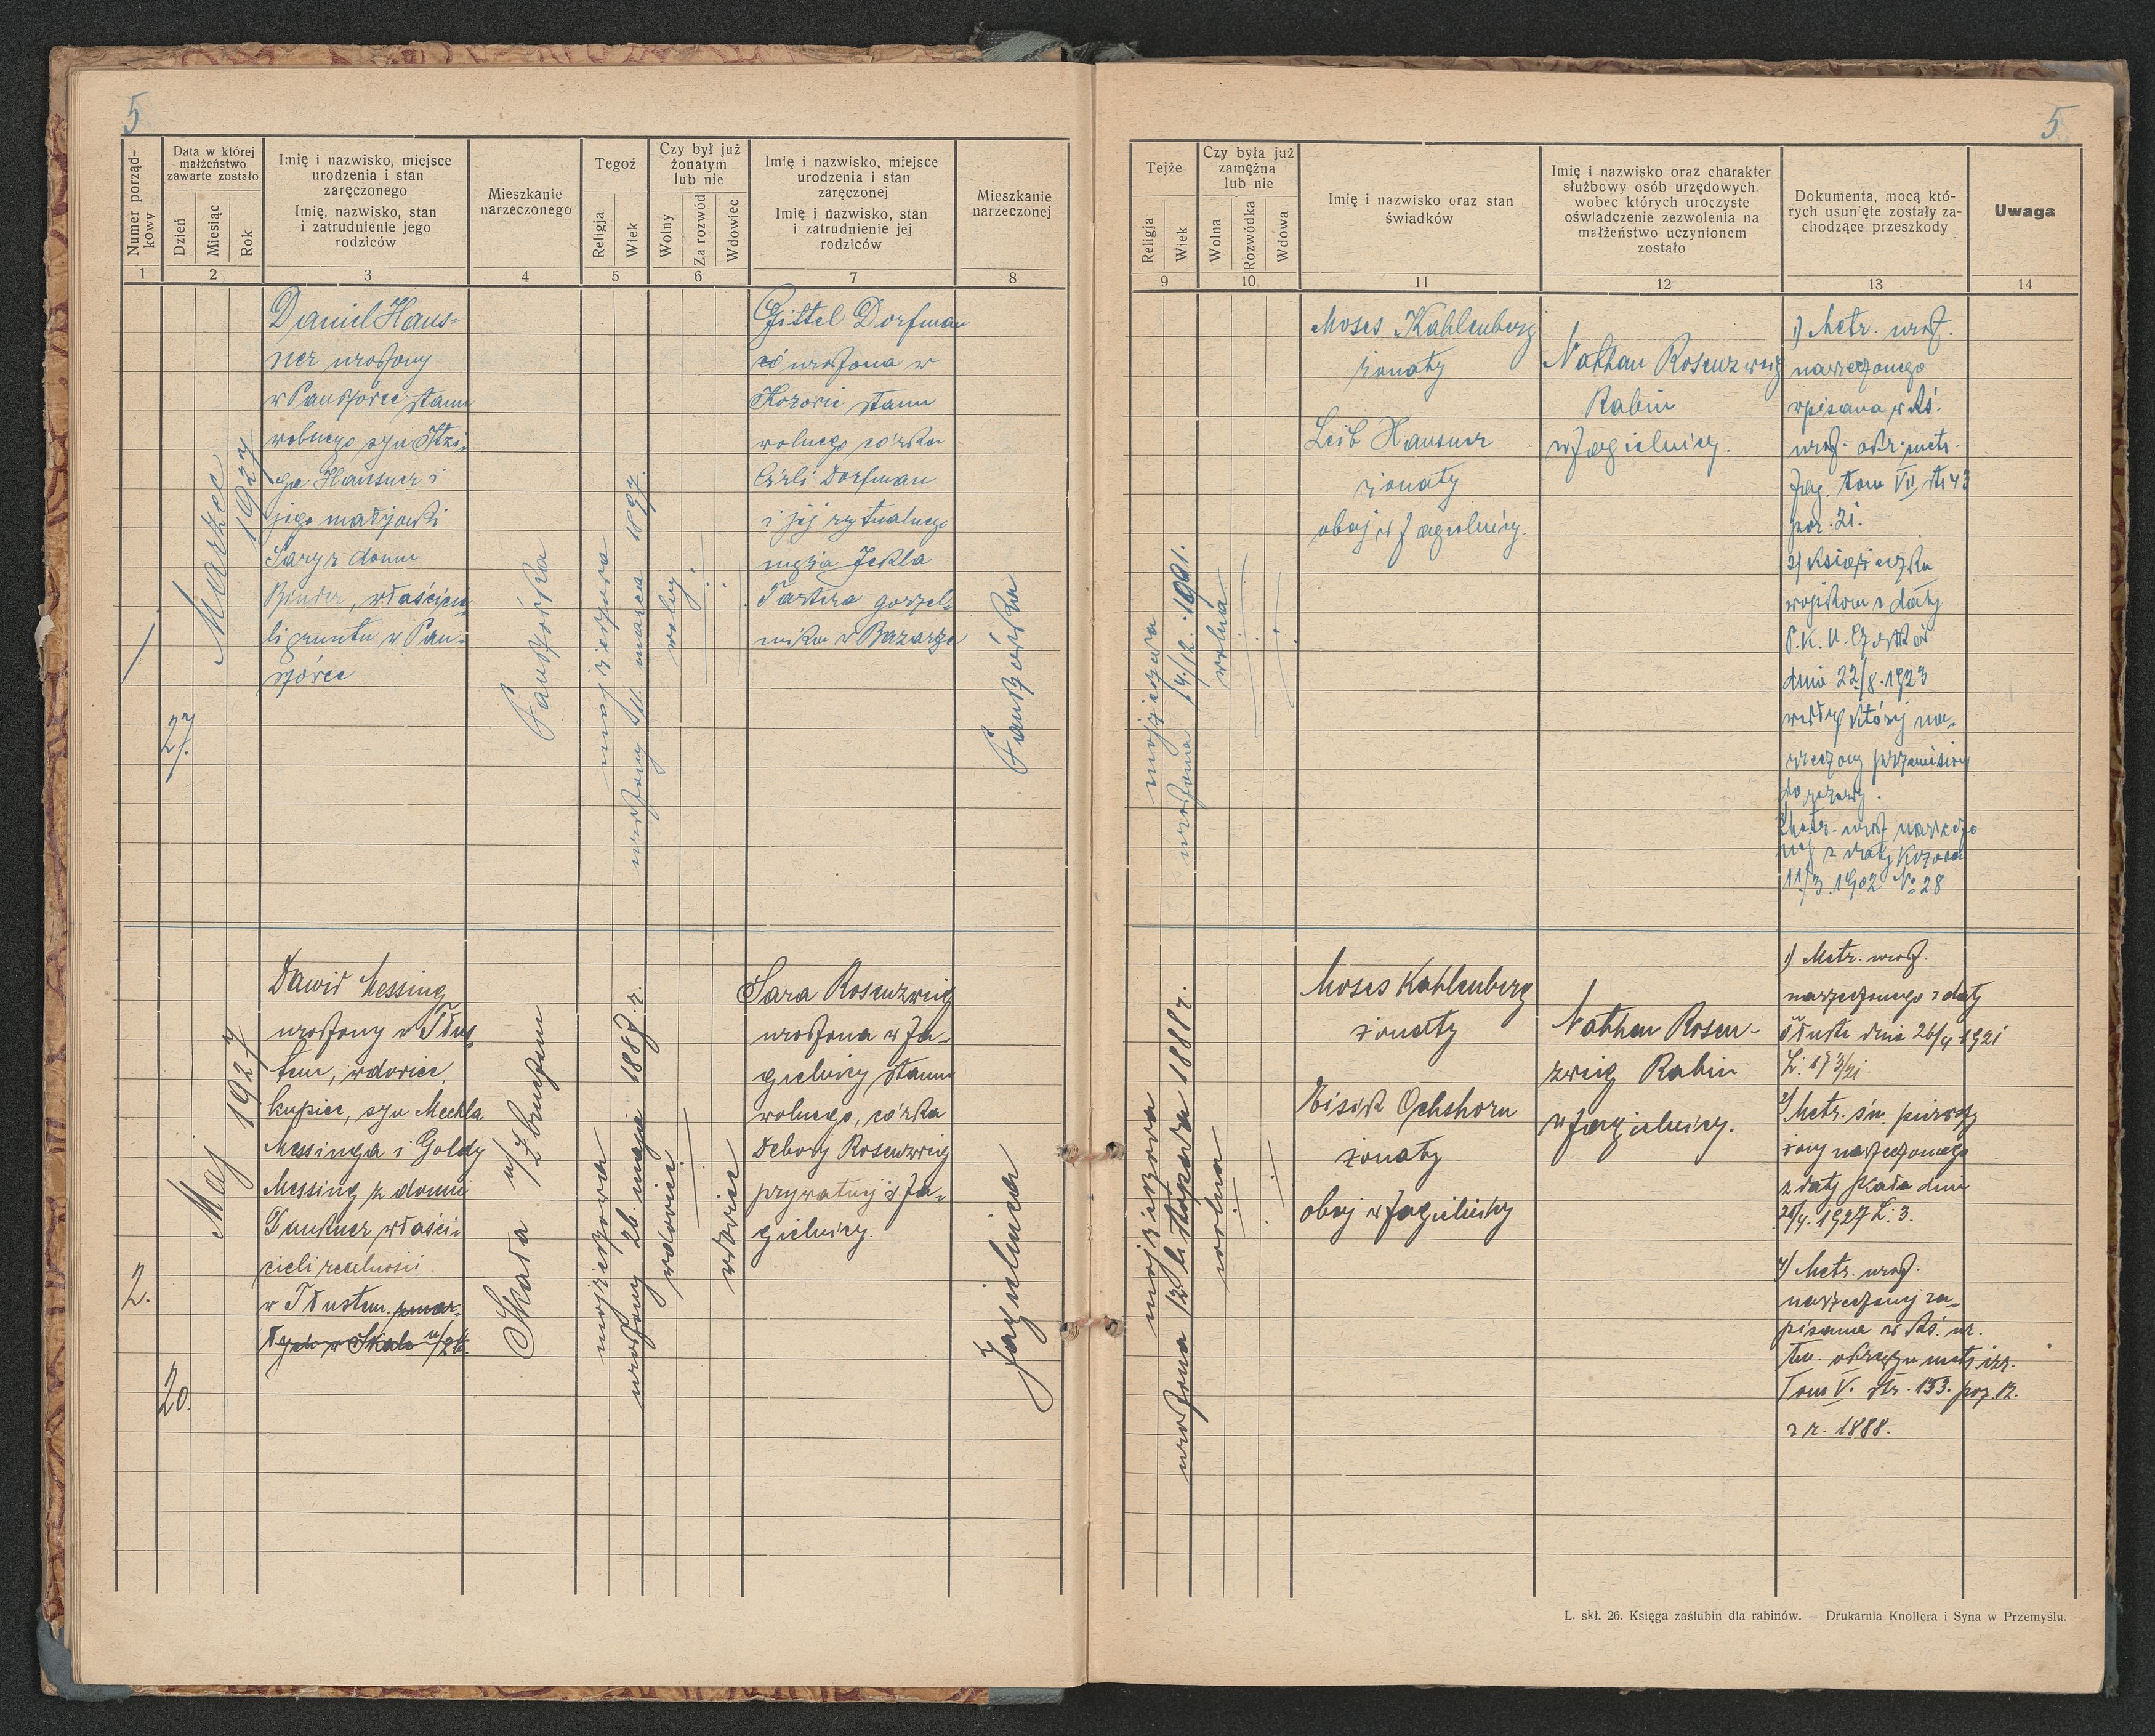 5
5
Numer porząd-
kowy
Data w której
małżeństwo
zawarte zostało
Dzień
Miesiąc
Rok
Imię i nazwisko, miejsce
urodzenia i stan
zaręczonego
Imię, nazwisko, stan
i zatrudnienie jego
rodziców
Mieszkanie
narzeczonego
Tegoż
Religja
Wiek
Czy był już
żonatym
lub nie
Wolny
Za rozwód
Wdowiec
Imię i nazwisko, miejsce
urodzenia i stan
zaręczonej
Imię i nazwisko, stan
i zatrudnienie jej
rodziców
Mieszkanie
narzeczonej
1 2 3 4 5 6 7 8
Tejże
Religja
Wiek
Czy była już
zamężna
lub nie
Wolna
Rozwódka
Wdowa
Imię i nazwisko oraz stan
świadków
Imię i nazwisko oraz charakter
służbowy osób urzędowych,
wobec których uroczyste
oświadczenie zezwolenia na
małżeństwo uczynionem
zostało
Dokumenta, mocą któ-
rych usunięte zostały za-
chodzące przeszkody
Uwaga
9 10. 11 12 13 14
1
27.
Marzec
1927
Daniel Haus-
ner urodzony
w Pauszówce stanu
wolnego syn Itzi-
ga Hausner i
jego małżonki
Sary z domu
Binder, właścicie
li gruntu w Pau-
szówce
Pauszówka
mojżeszowa
urodzony 5/11. marca 1897.
wolny
Gittel Dorfman
urodzona w
Kozowie stanu
wolnego córka
Cirli Dorfman
i jej rytualnego
męża Jekla
gorzel-
nika w Bazarze
Pauszówka
mojżeszowa
urodzona 14./12. 1901.
wolna
Moses Kahlenberg
żonaty
Leib Hausner
żonaty
obaj w Jagielnicy
Nathan Rosenzweig
Rabin
w Jagielnicy.
1) Metr. urodz.
narzeczonego
wpisana w ks.
urodz. okr. metr.
Jag. tom VII str 43
poz. 21.
2) Książeczka
wojskowa z daty
P.K.U. Czortków
dnia 22/8. 1923
wedłg której na-
rzeczony przeniesiony
do rezerwy.
Metr. urodz narzeczo
nej z daty Kozowa
11/3. 1902 No 28
2.
20.
Maj 1927
Dawid Messing
urodzony w Tłus-
tem, wdowiec
kupiec, syn Mechla
Messinga i Goldy
Messing z domu
właści-
cieli realności
w Tłustem.
Skała n/Zbruczem
mojżeszowa
urodzony 26. maja 1887. r.
wdowiec
wdowiec
Sara Rosenzweig
urodzona w Ja-
gielnicy stanu
wolnego, córka
Debory Rosenzweig
prywatnej z Ja-
gielnicy.
Jagielnica
mojżeszowa
urodzona 12 listopada 1888 r.
wolna
Moses Kahlenberg
żonaty
Eisik Ochshorn
żonaty
obaj w Jagielnicy
Nathan Rosen-
zweig Rabin
w Jagielnicy.
1) Metr. urodz.
narzeczonego z daty
Tłuste dnia 26/4 1921
L: 173/21
2) Metr. śm. pierwszej
żony narzeczonego
z daty Skała dnia
28/4. 1927 L: 3.
Metr. urodz.
narzeczonej za-
pisana w ks. ur.
tut. okręgu metr. izr.
Tom V. str. 153. poz. 12.
z r. 1888.
L. skł. 26. Księga zaślubin dla rabinów. — Drukarnia Knollera i Syna w Przemyślu.